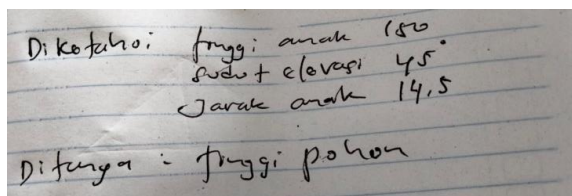 Diketahui tinggi anak 150
sudut elevasi 45°
Jarak anak 14,5
Ditanya : tinggi pohon